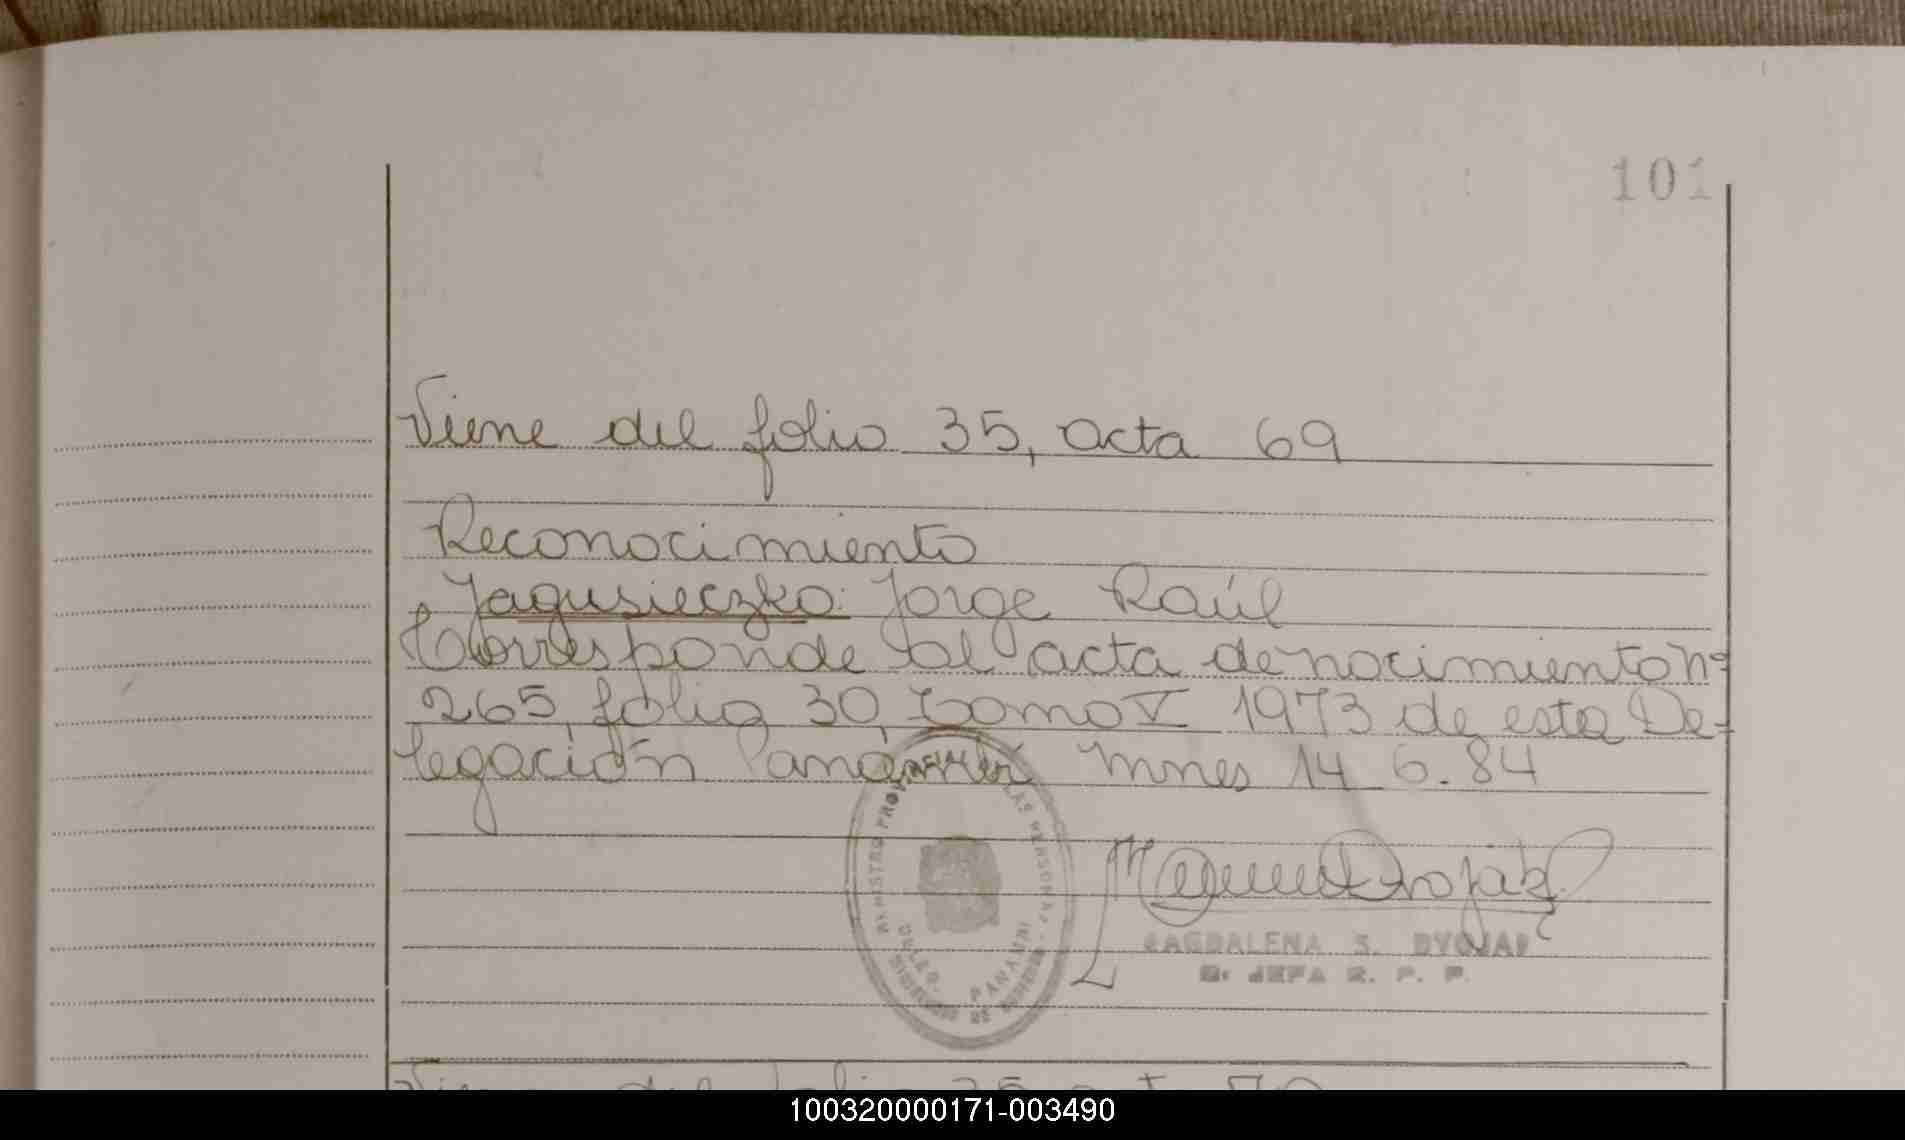 101
Viene del folio 35, acta 69
Reconocimiento
Jagusieczko: Jorge Raúl
Corresponde al acta de nacimiento nº
265, folio 30 tomo V 1973 de esta De-
legación Panambí Mnes 14 6.84
REGISTRO PROVINCIAL DE LAS PERSONAS
PANAMBI
MAGDALENA S. DVOJAK
JEFA R. P. P.
Viene del folio 35 act 70
100320000171-003490